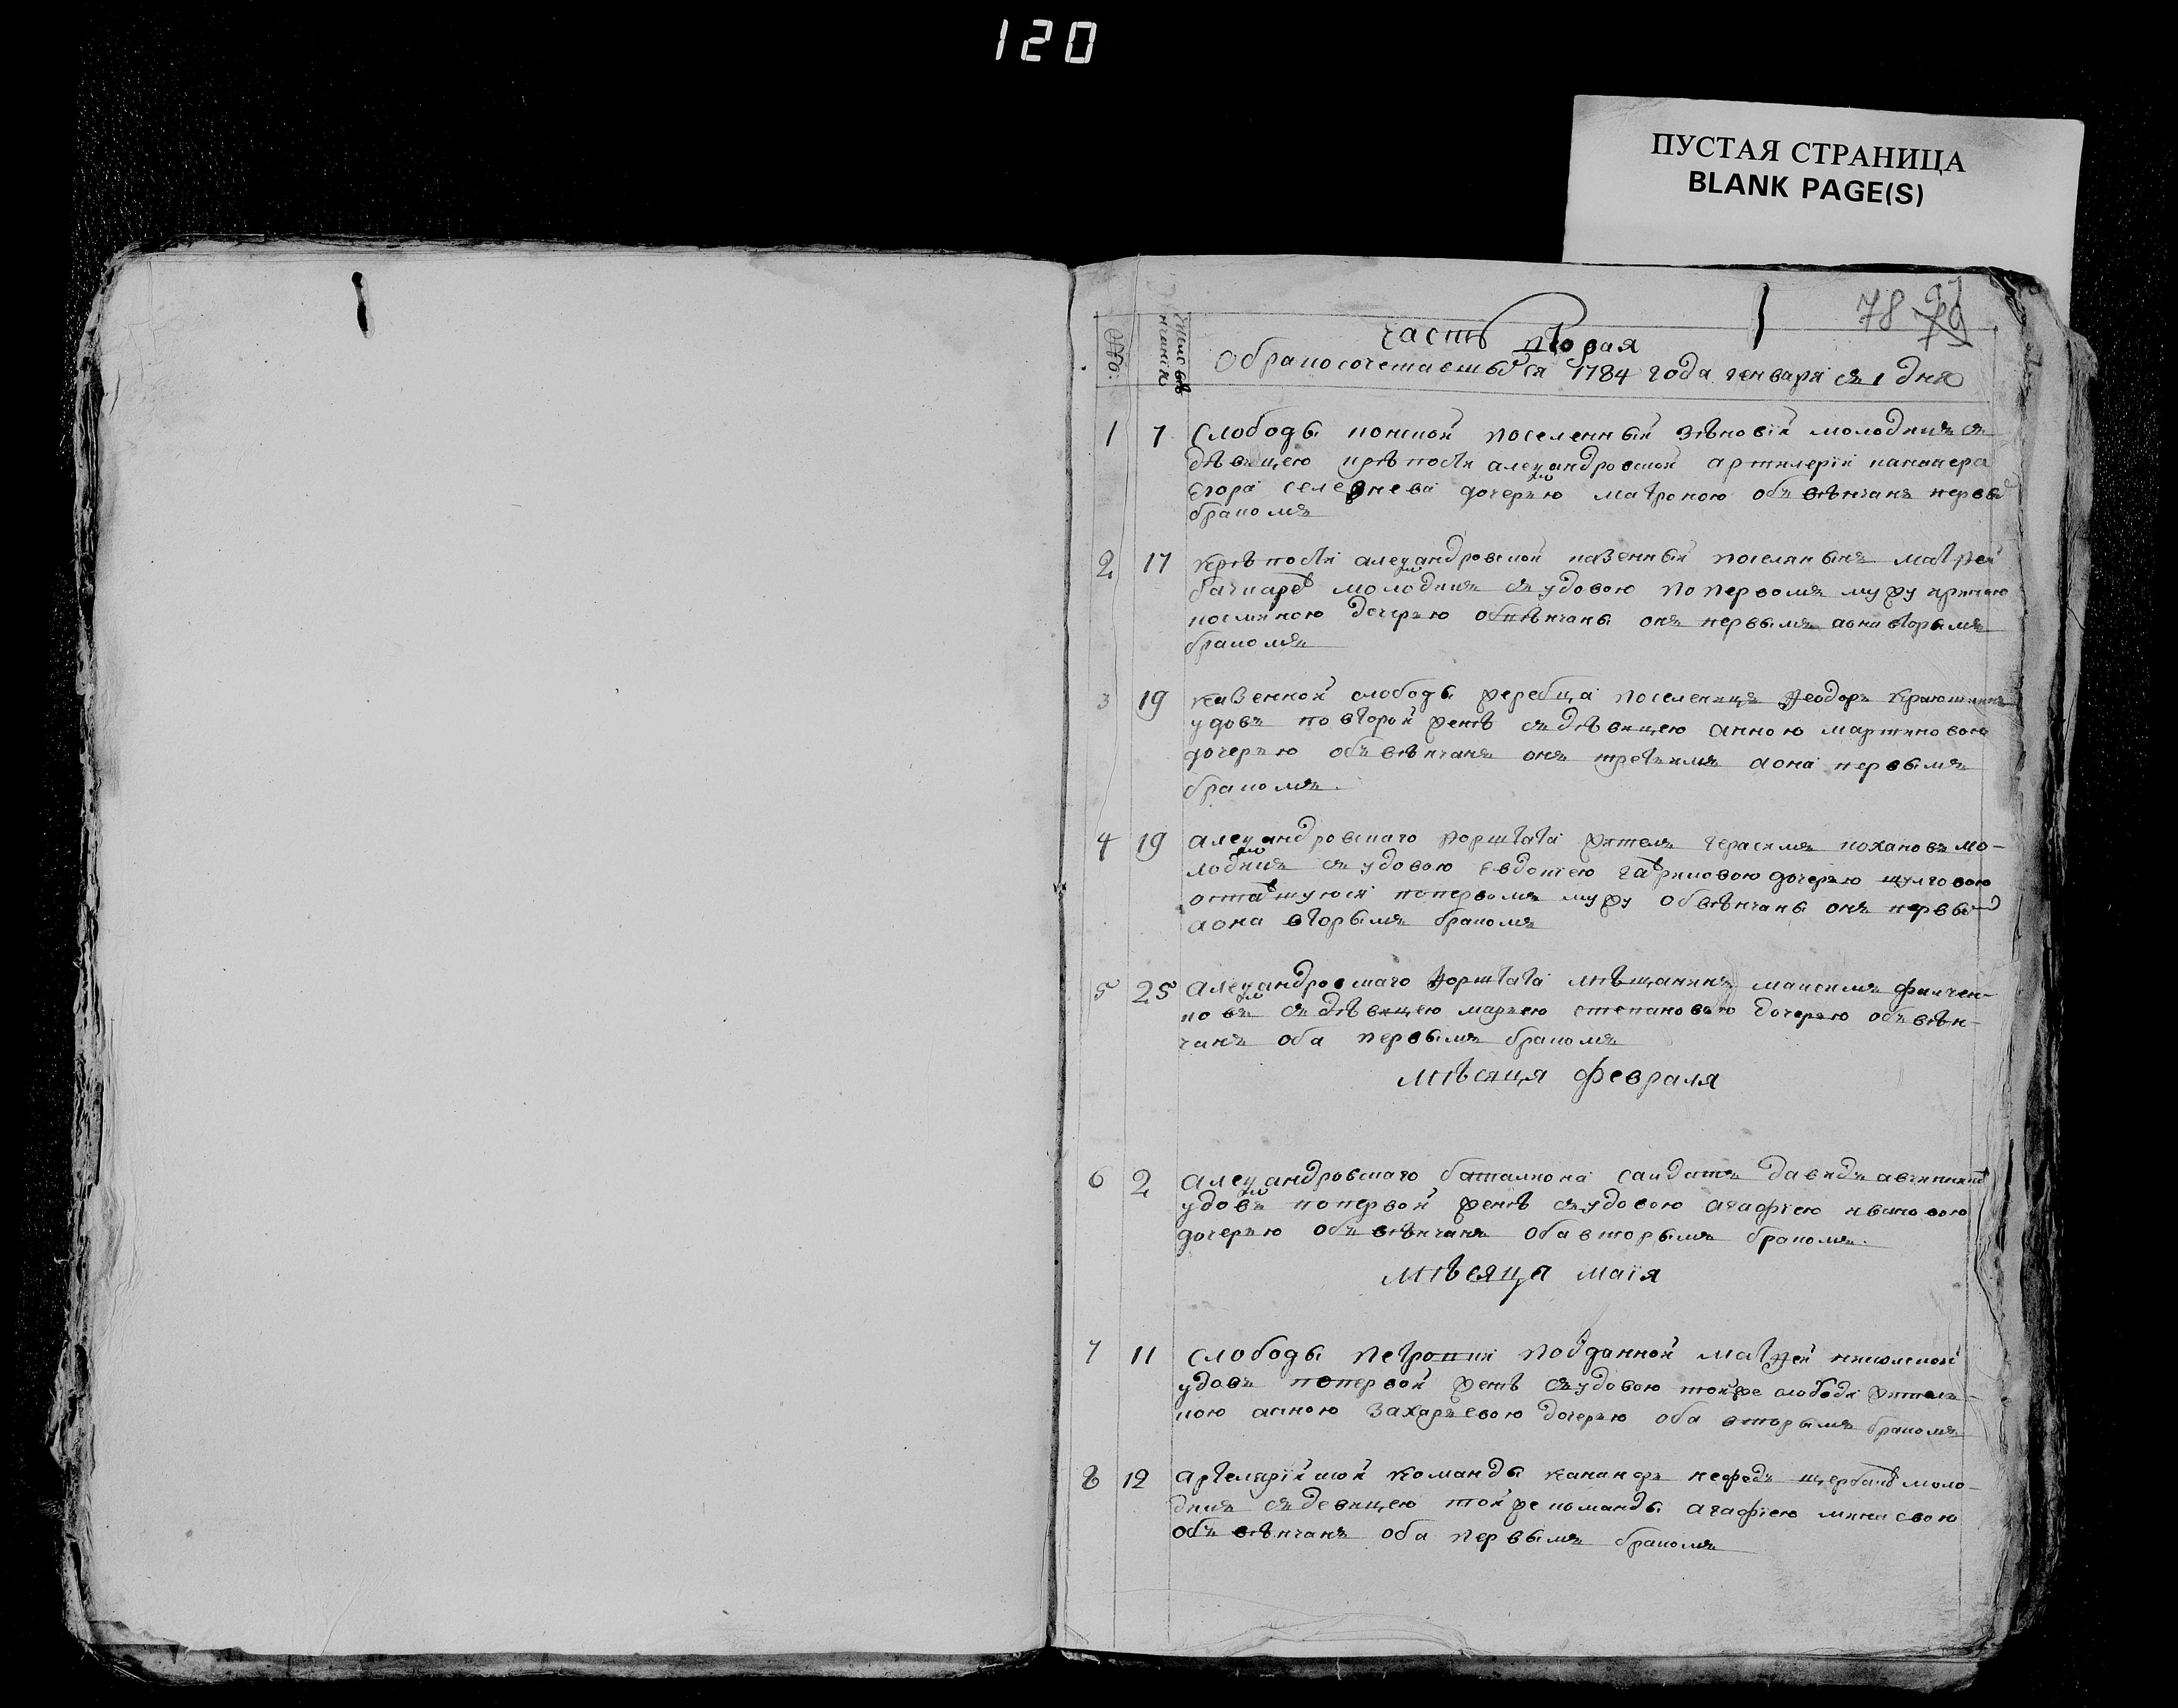 120
ПУСТАЯ СТРАНИЦА
BLANK PAGE(S)
78
часть вторая
О бракосочетавшыхся 1784 года генваря съ 1 дня
1 7 Слободы конской поселенный Зѣновїй молодикъ съ
дѣвицею крѣпости александровской артилерїи канонера
Егора селезнева дочерью матроною объвѣнчанъ первы
бракомъ
2 17 Крѣпости александровской казенный поселянынъ матфей
молодикъ съ удовою по первомъ мужу
дочерью обвѣнчаны онъ первымъ а она вторымъ
бракомъ
3 19 Казенной слободы жеребца поселенецъ Феодоръ
удовъ по второй женѣ съ дѣвицею анною мартиновою
дочерью объвѣнчанъ онъ третимъ а она первымъ
бракомъ
4 19 александровскаго форштата жытель герасимъ кохановъ мо-
лодикъ съ удовою Евдокїею гавриловою дочерью
оставшуюся по первомъ мужу обвѣнчаны онъ первы
а она вторымъ бракомъ
5 25 Александровскаго форштата мѣщанинъ максимъ филчен-
ковъ съ дѣвицею марьею степановою дочерью объвѣн-
чанъ оба первымъ бракомъ
мѣсяця февраля
6 2 Александровскаго баталиона салдатъ давидъ
удовъ по первой женѣ съ удовою агафїею ивановою
дочерью объвѣнчанъ оба вторымъ бракомъ
мѣсяца маїя
7 11 слободы петровки подданной матфей
удовъ по первой женѣ съ удовою той же слободи жытель-
кою анною захарьевою дочерью оба вторымъ бракомъ
8 12 артеларїйской команды нефедъ щербакъ моло-
дикъ съ девицею той же команды агафїею
объвѣнчанъ оба первымъ бракомъ